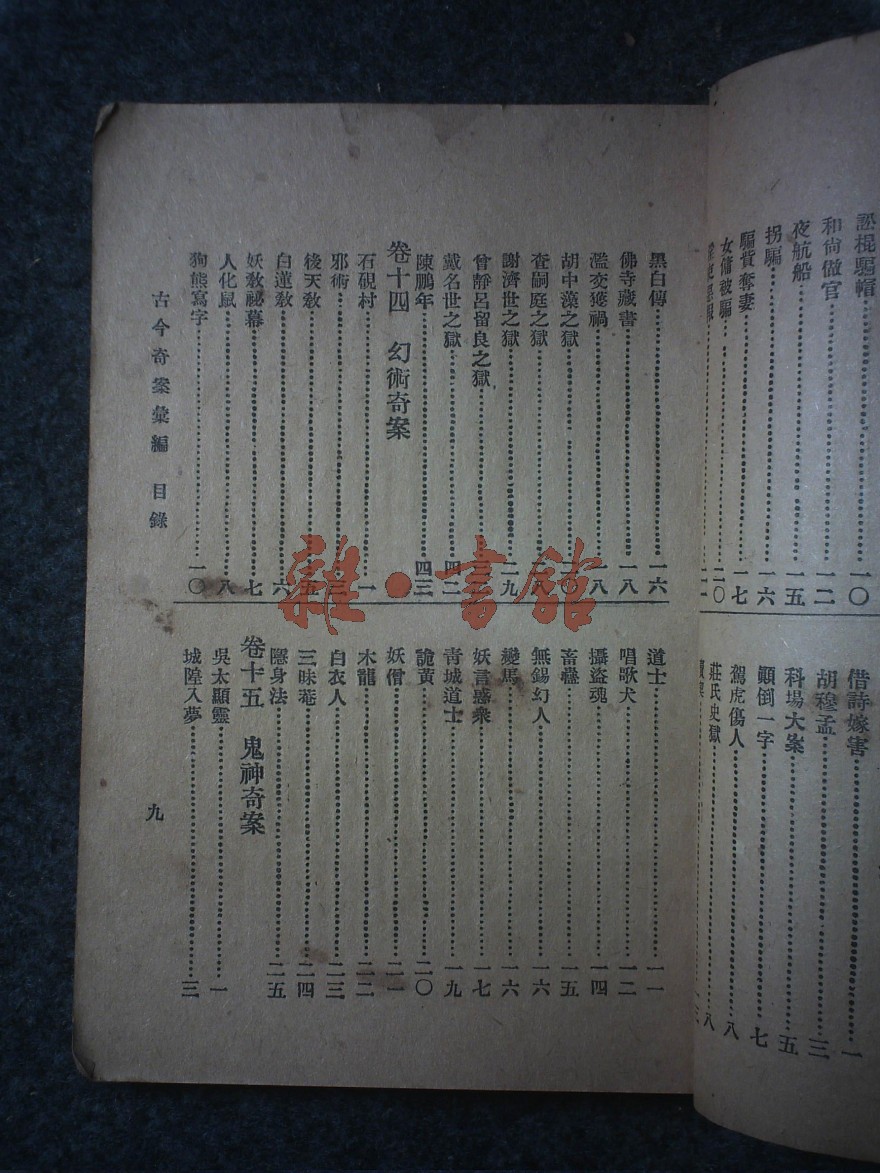 訟棍騙帽 一〇
和尙做官 一二
夜航船 一五
拐騙 一六
騙貲奪妻 一七
女傭被騙 二〇
借詩嫁害 一
胡穆孟 三
科場大案 五
顚倒一字 七
駕虎傷人 八
莊氏史獄 八
黑白傳 一六
佛寺藏書 一八
濫交獲禍 一八
胡中藻之獄 二〇
查嗣庭之獄 二八
謝濟世之獄 二九
曾靜呂留良之獄
戴名世之獄 四二
陳鵬年 四三
卷十四 幻術奇案
石硯村 一
邪術 三
後天敎 五
白蓮敎 六
妖敎祕幕 七
人化鼠 八
狗熊寫字 一〇
道士 一一
唱歌犬 一二
攝盜魂 一四
畜蠱 一五
無錫幻人 一六
變馬 一六
妖言惑衆 一七
靑城道士 一九
詭黃 二〇
妖僧 二一
木龍 二二
白衣人 二三
三昧菴 二四
隱身法 二五
卷十五 鬼神奇案
吳太顯靈 一
城隍入夢 三
古今奇案彙編 目錄
九
雜·書館